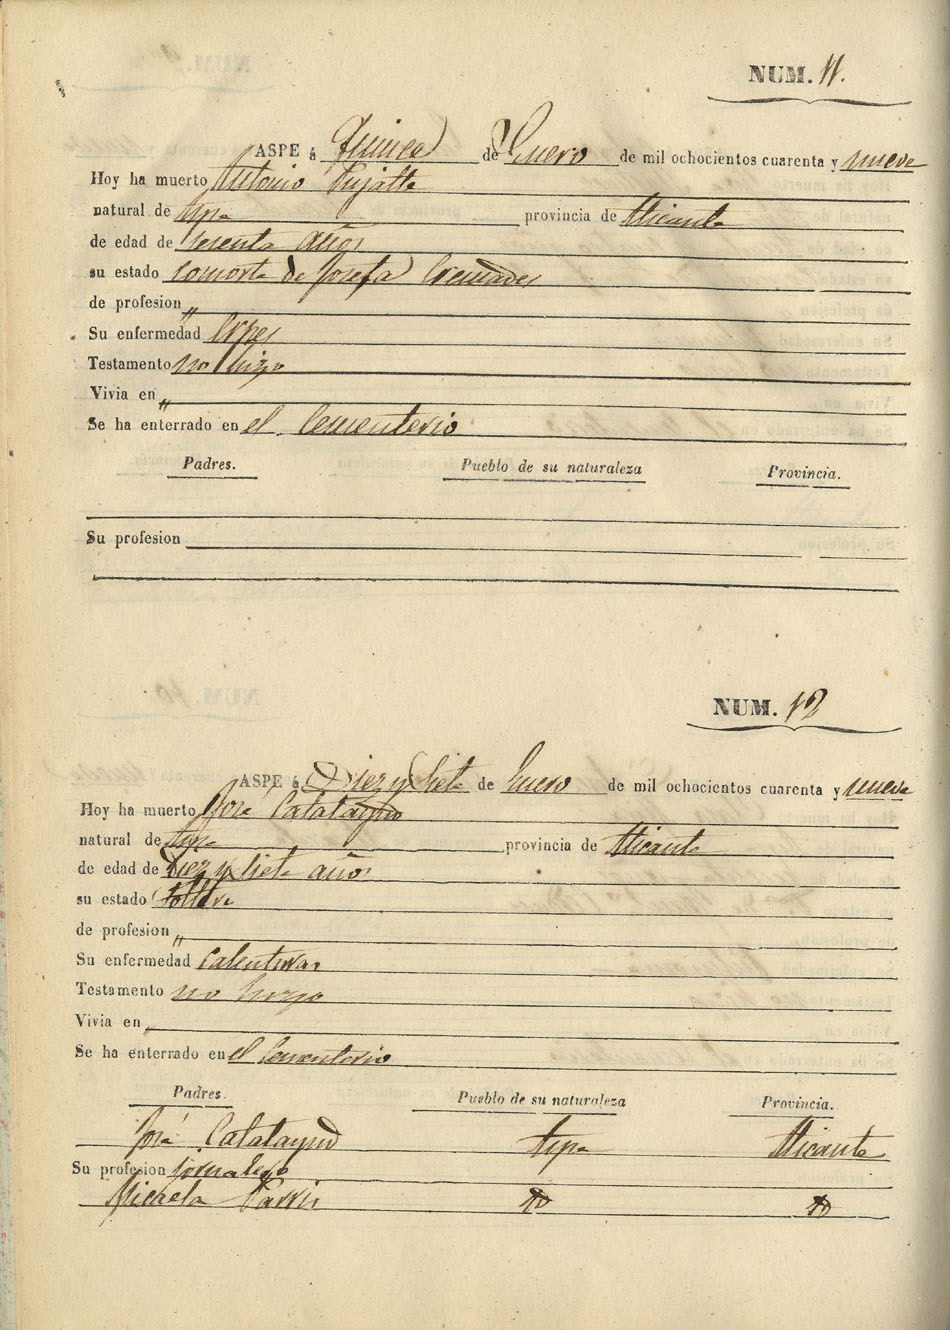 NUM. 11.
ASPE á Quince de Enero de mil ochocientos cuarenta y nueve
Hoy ha muerto Antonio Pujalte
natural de Aspe provincia de Alicante
de edad de sesenta años
su estado consorte de Josefa Cremades
de profesion "
Su enfermedad
Testamento no hizo
Vivia en "
Se ha enterrado en el Cementerio
Padres. Pueblo de su naturaleza Provincia.
Su profesion
NUM. 12
ASPE á Diez y Siete de Enero de mil ochocientos cuarenta y nueve
Hoy ha muerto José Calatayud
natural de Aspe provincia de Alicante
de edad de Diez y siete años
su estado Soltero
de profesion "
Su enfermedad Calenturas
Testamento no hizo
Vivia en "
Se ha enterrado en el Cementerio
Padres. Pueblo de su naturaleza Provincia.
José Calatayud Aspe Alicante
Su profesion jornalero
Micaela